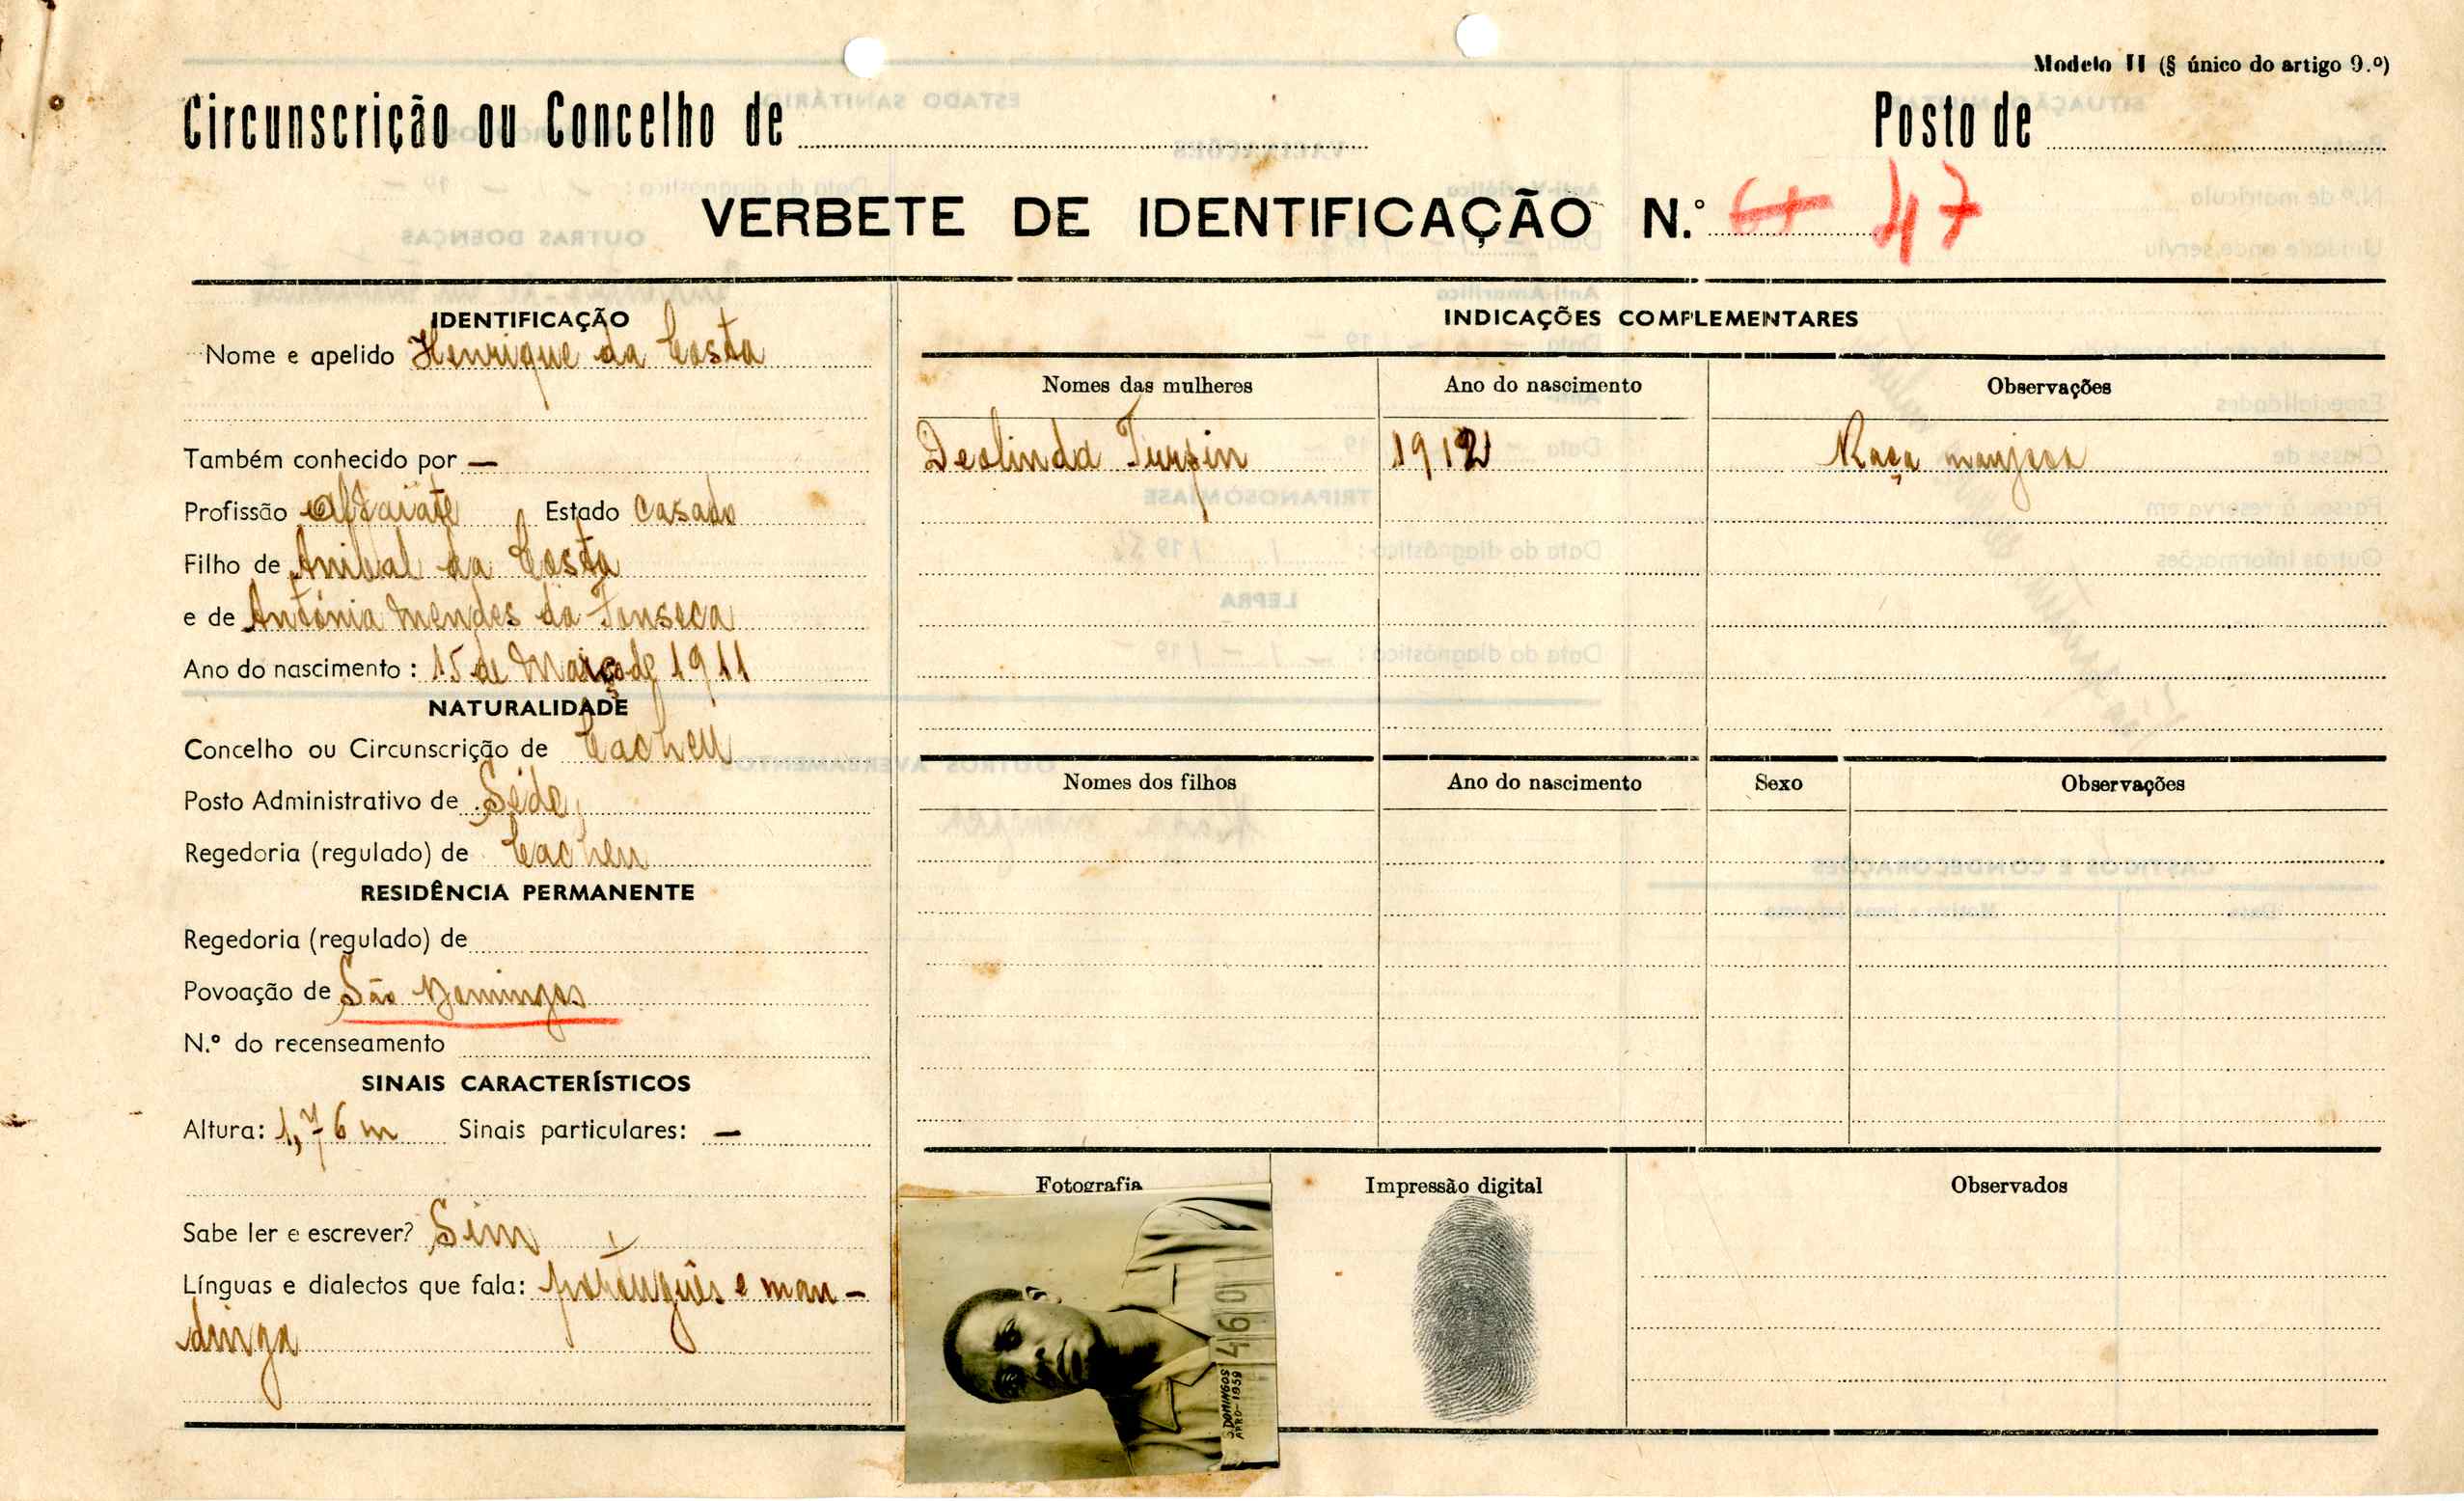 Modelo II (§ único do artigo 9.º)
Circunscrição ou Concelho de
Posto de
VERBETE DE IDENTIFICAÇÃO N.º 47
IDENTIFICAÇÃO
Nome e apelido Henrique da Costa
Também conhecido por —
Profissão Alfaiate Estado Casado
Filho de Anibal da Costa
e de Antónia Mendes da Fonseca
Ano do nascimento : 15 de Março de 1911
NATURALIDADE
Concelho ou Circunscrição de Cacheu
Posto Administrativo de Séde,
Regedoria (regulado) de Cacheu
RESIDÊNCIA PERMANENTE
Regedoria (regulado) de
Povoação de São Domingos
N.º do recenseamento
SINAIS CARACTERÍSTICOS
Altura: 1,76 m Sinais particulares: —
Sabe ler e escrever? Sim
Línguas e dialectos que fala: português e man-
dinga
INDICAÇÕES COMPLEMENTARES
Nomes das mulheres Ano do nascimento Observações
Deolinda Turpin 1912 Raça manjaca
Nomes dos filhos Ano do nascimento Sexo Observações
Fotografia Impressão digital Observados
460
S. DOMINGOS
1959